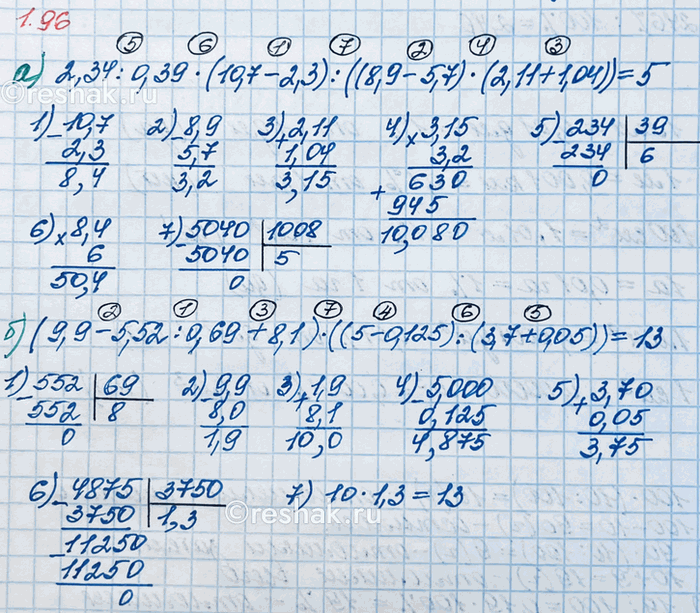 1.96
5 6 1 7 2 4 3
а) 2,34 : 0,39 · (10,7 − 2,3) : ((8,9 − 5,7) · (2,11 + 1,04)) = 5
1) 10,7 2) 8,9 3) 2,11 4) × 3,15 5) 234 | 39
− 2,3 − 5,7 + 1,04 3,2 − 234 | 6
8,4 3,2 3,15 630 0
+ 945
10,080
6) × 8,4 7) 5040 | 1008
6 − 5040 | 5
50,4 0
2 1 3 7 4 6 5
б) (9,9 − 5,52 : 0,69 + 8,1) · ((5 − 0,125) : (3,7 + 0,05)) = 13
1) 552 | 69 2) 9,9 3) 1,9 4) 5,000 5) 3,70
− 552 | 8 − 8,0 + 8,1 − 0,125 + 0,05
0 1,9 10,0 4,875 3,75
6) 4875 | 3750 7) 10 · 1,3 = 13
− 3750 | 1,3
− 11250
11250
0
©reshak.ru
©reshak.ru